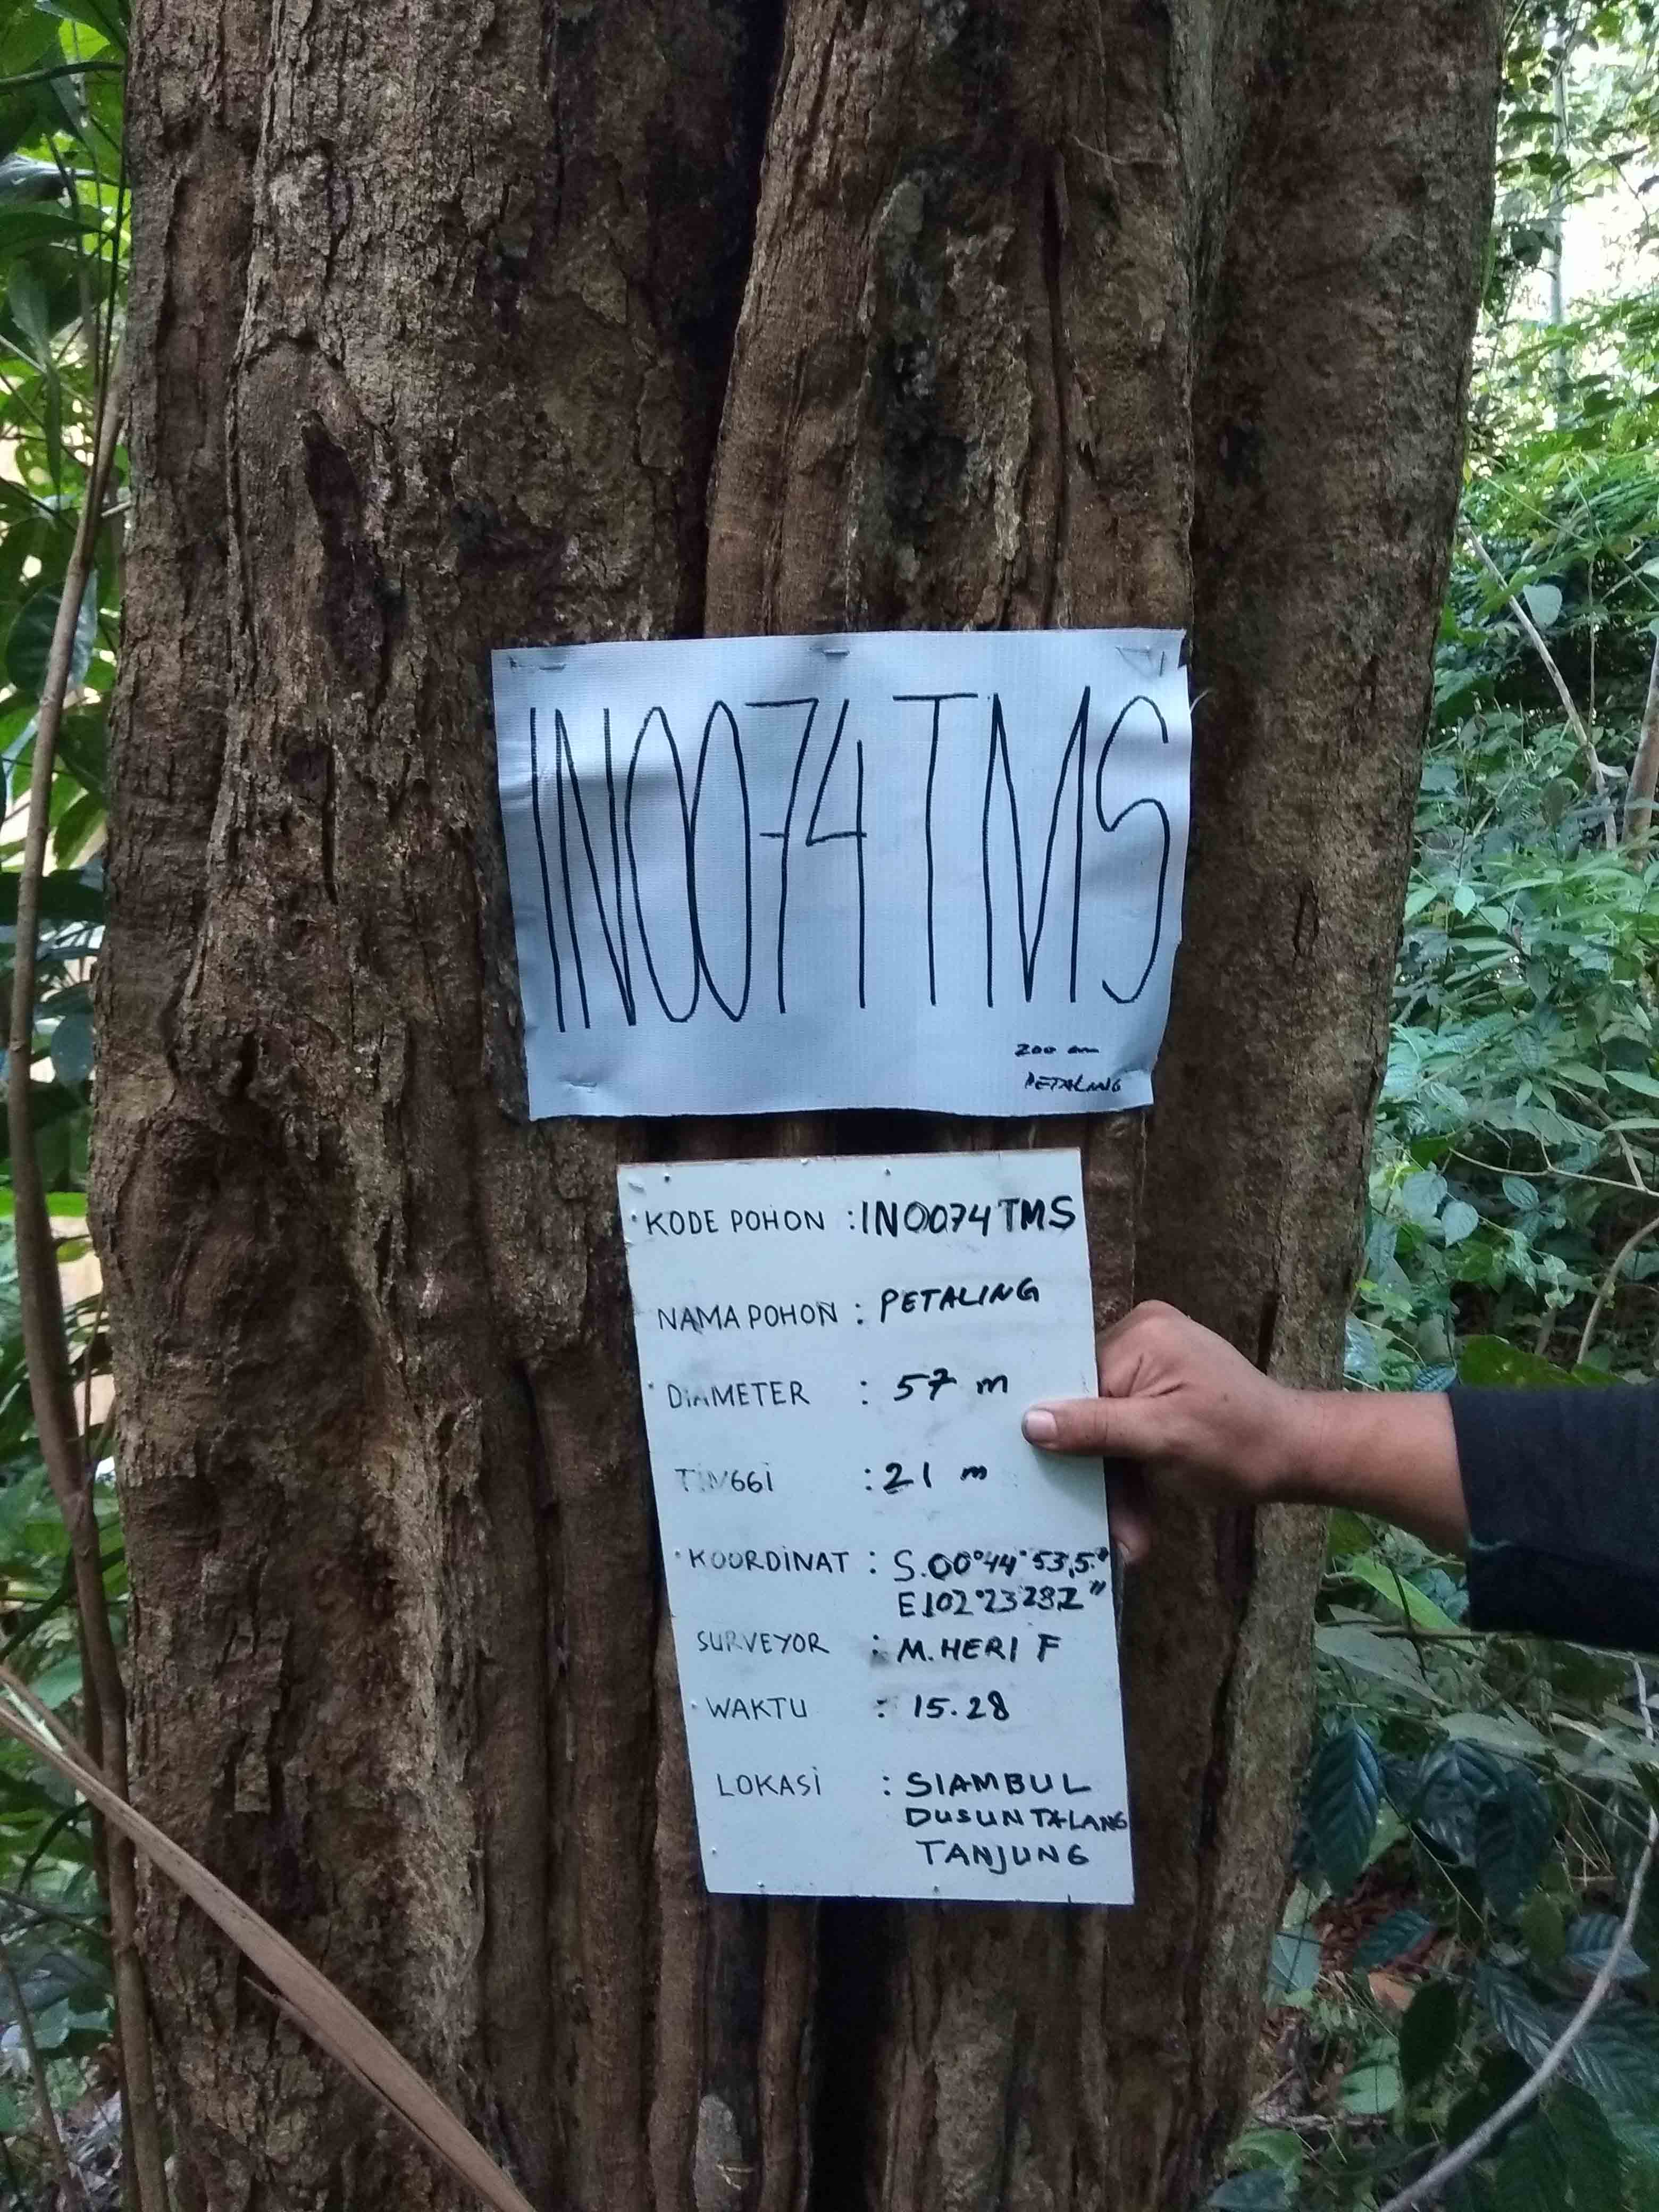 IN0074TMS
200 cm
PETALING
KODE POHON : IN0074TMS
NAMA POHON : PETALING
DIAMETER : 57 m
TINGGI : 21 m
KOORDINAT : S.00°44'53,5"
E102°23'28Z"
SURVEYOR : M. HERI F
WAKTU : 15.28
LOKASI : SIAMBUL
DUSUN TALANG
TANJUNG